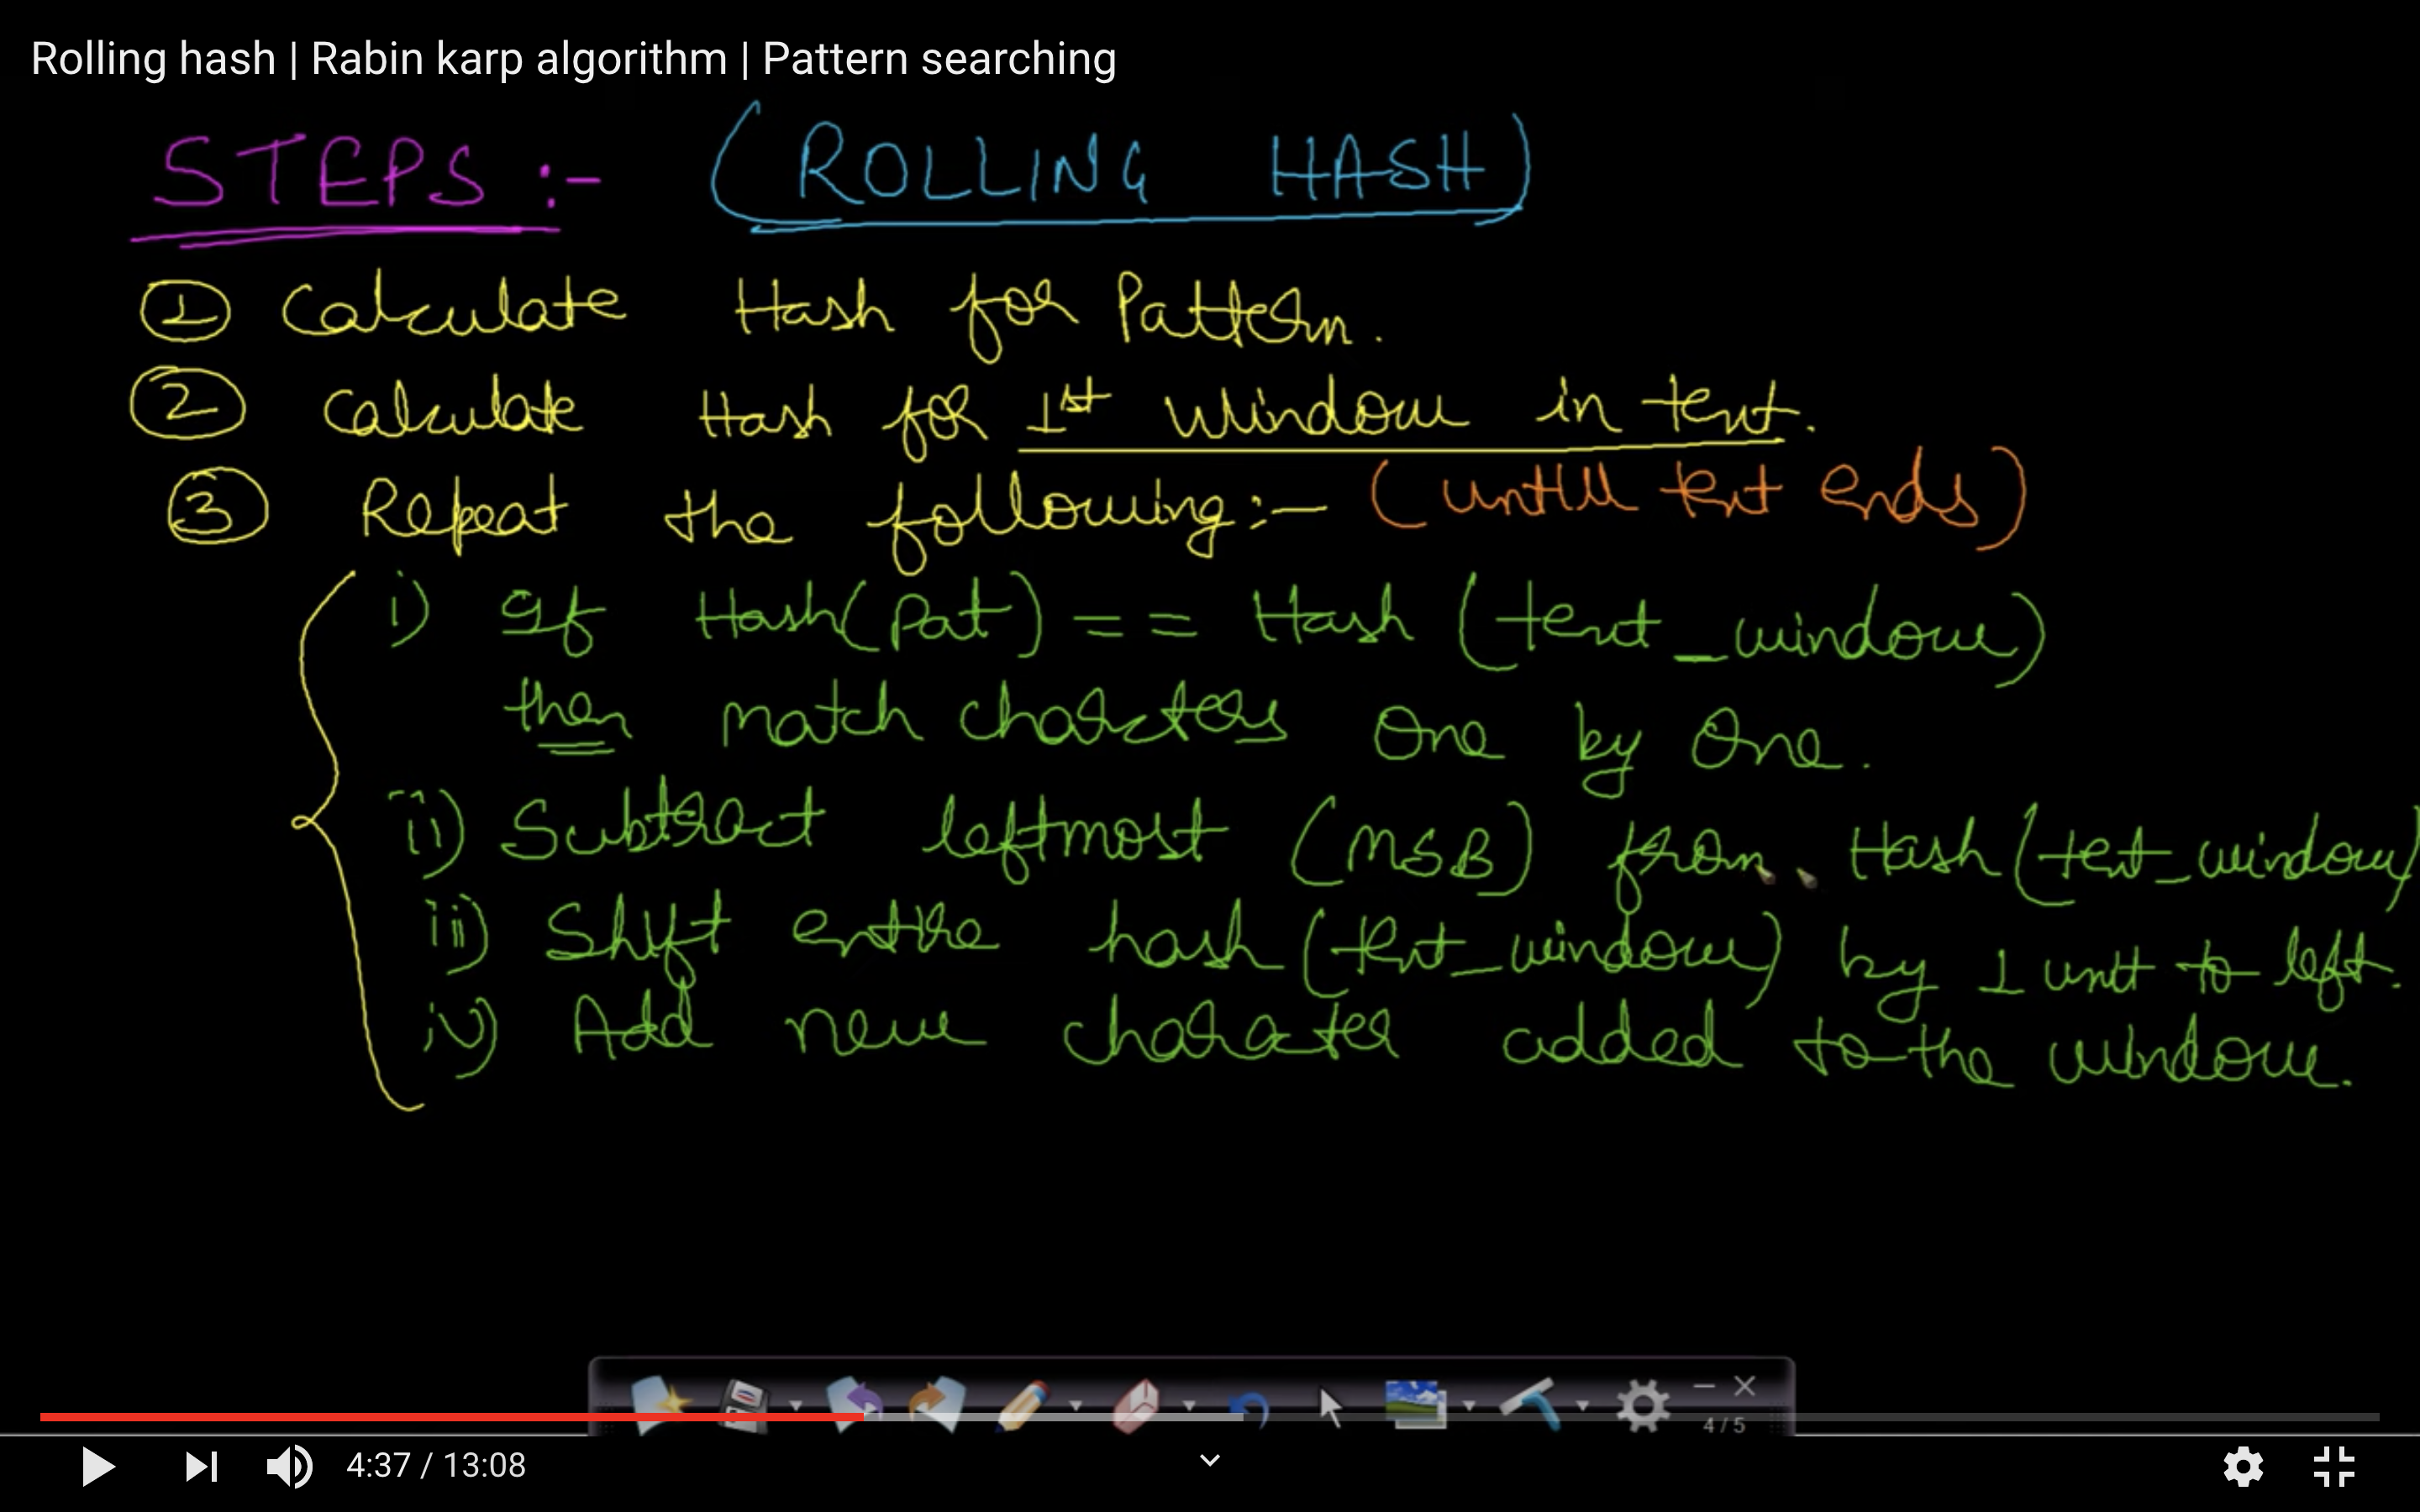 Rolling hash | Rabin karp algorithm | Pattern searching
STEPS :- (ROLLING HASH)
① Calculate Hash for Pattern.
② Calculate Hash for 1st Window in text.
③ Repeat the following :- (untill text ends)
i) If Hash(Pat) == Hash (text_window)
then match characters One by One.
ii) Subtract leftmost (MSB) from Hash (text_window)
iii) Shift entire hash (text_window) by 1 unit to left.
iv) Add new charater added to the window.
4/5
4:37 / 13:08